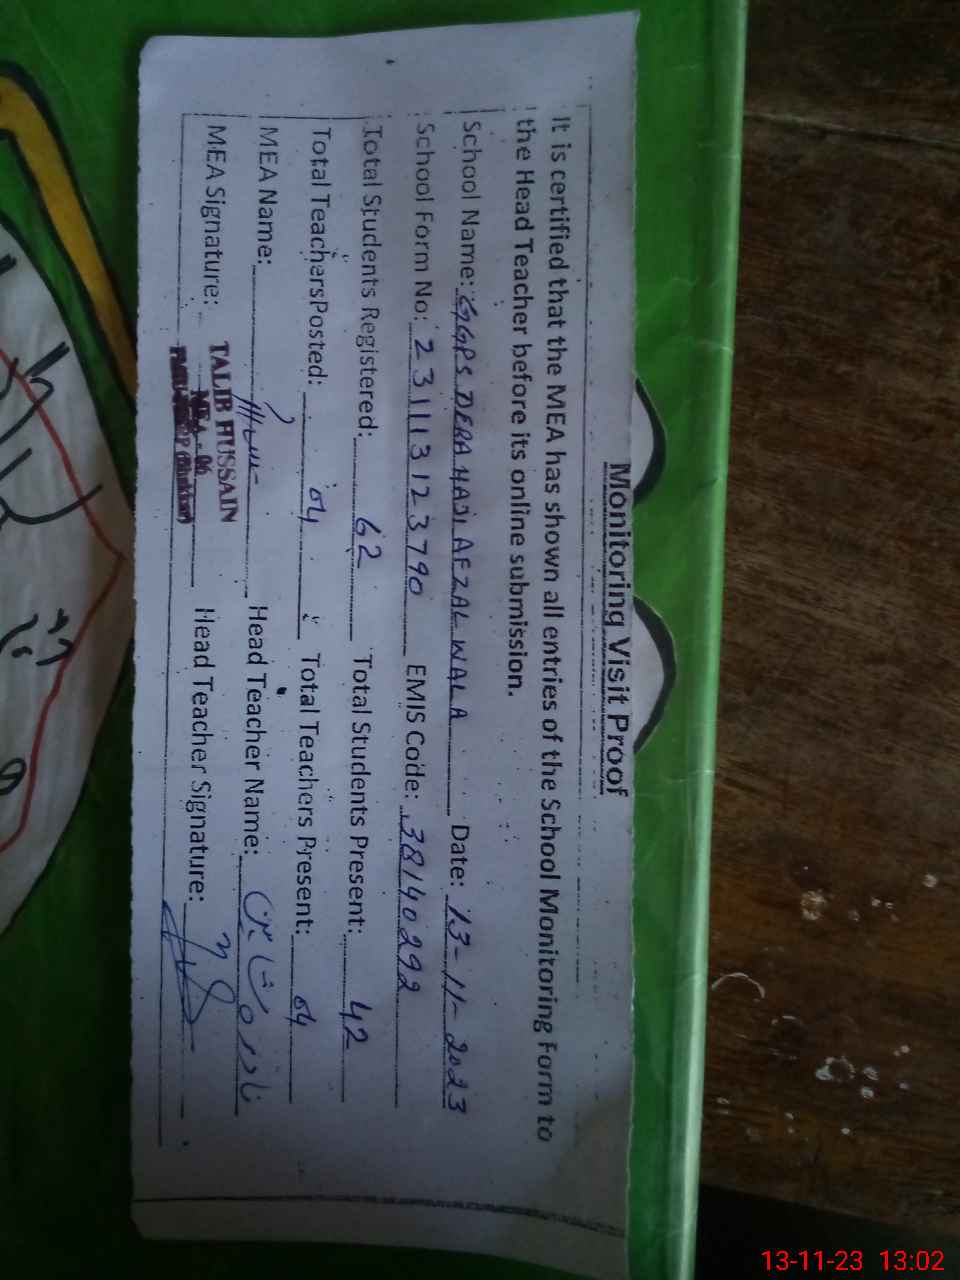 Monitoring Visit Proof
It is certified that the MEA has shown all entries of the School Monitoring Form to
the Head Teacher before its online submission.
School Name: GGPS DERA HAJI AFZAL WALA Date: 13-11-2023
School Form No: 231113123790 EMIS Code: 38140292
Total Students Registered: 62 Total Students Present: 42
Total Teachers Posted: 04 Total Teachers Present: 04
MEA Name: Head Teacher Name:
MEA Signature: Head Teacher Signature:
TALIB HUSSAIN
MEA - 06
(Bhakkar)
13-11-23 13:02